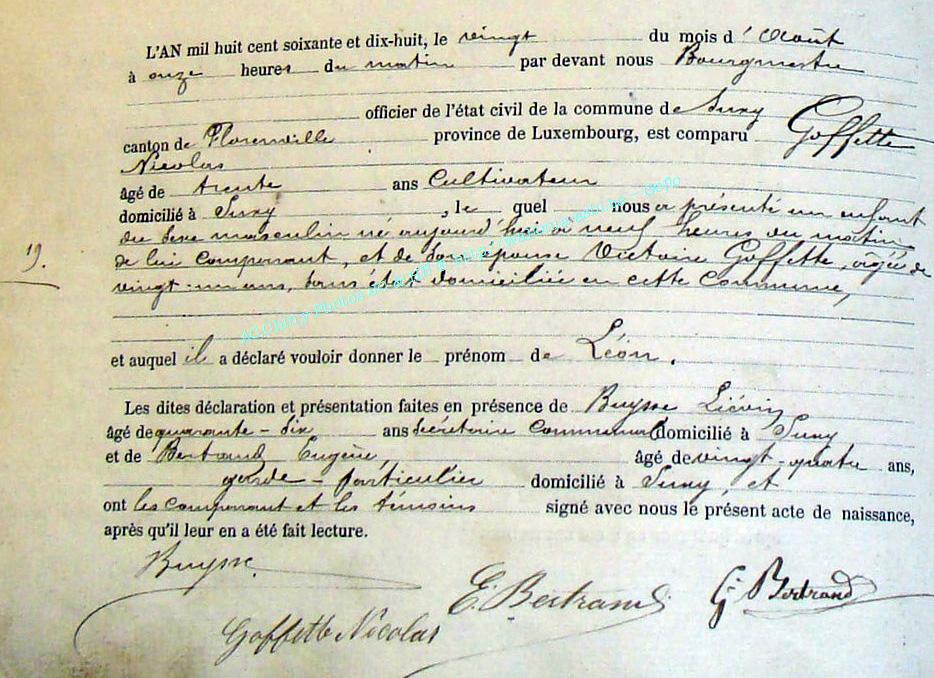 L'AN mil huit cent soixante et dix-huit, le vingt du mois d'Août
à onze heures du matin par devant nous Bourgmestre
officier de l'état civil de la commune de Suxy
canton de Florenville province de Luxembourg, est comparu Goffette
Nicolas
âgé de trente ans Cultivateur
domicilié à Suxy, le quel nous a présenté un enfant
du sexe masculin né aujourd'hui à neuf heures du matin
19. de lui comparant, et de son épouse Victoire Goffette, âgée de
vingt-un ans, sans état domiciliée en cette Commune,
et auquel il a déclaré vouloir donner le prénom de Léon.
Les dites déclaration et présentation faites en présence de Buysse Liévin
âgé de quarante-six ans Secrétaire Communal domicilié à Suxy
et de Bertrand Eugène, âgé de vingt-quatre ans,
garde-particulier domicilié à Suxy, et
ont les comparant et les témoins signé avec nous le présent acte de naissance,
après qu'il leur en a été fait lecture.
Buysse
E. Bertrand G. Bertrand
Goffette Nicolas